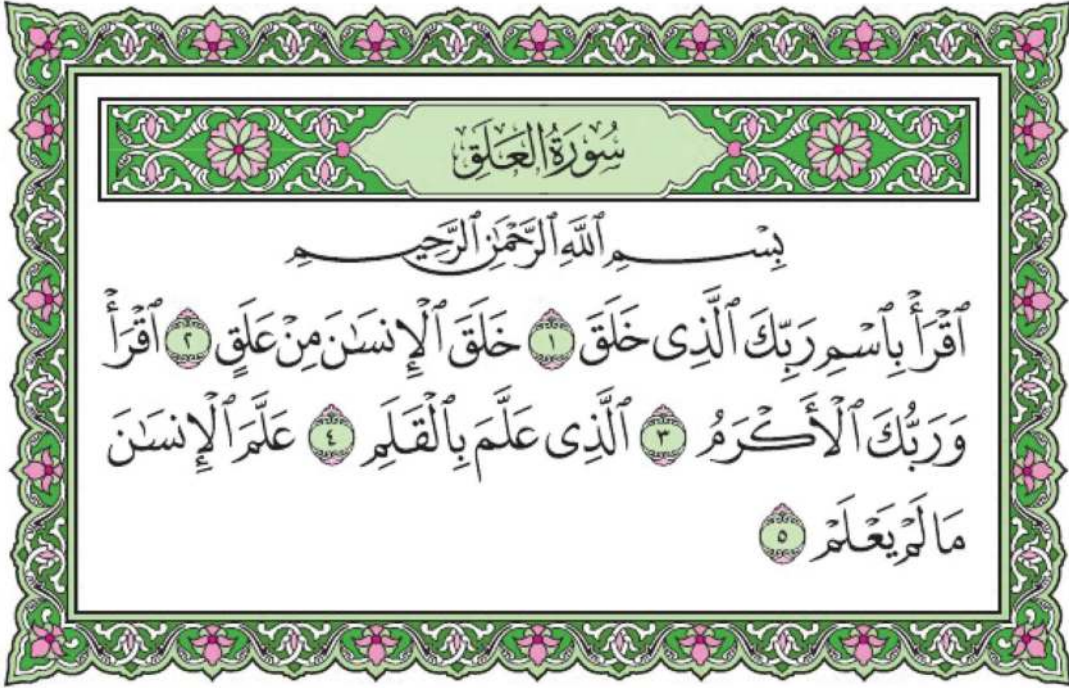 سُورَةُ الْعَلَقِ
بِسْمِ ٱللَّهِ ٱلرَّحْمَٰنِ ٱلرَّحِيمِ
ٱقْرَأْ بِٱسْمِ رَبِّكَ ٱلَّذِى خَلَقَ ١ خَلَقَ ٱلْإِنسَٰنَ مِنْ عَلَقٍ ٢ ٱقْرَأْ
وَرَبُّكَ ٱلْأَكْرَمُ ٣ ٱلَّذِى عَلَّمَ بِٱلْقَلَمِ ٤ عَلَّمَ ٱلْإِنسَٰنَ
مَا لَمْ يَعْلَمْ ٥